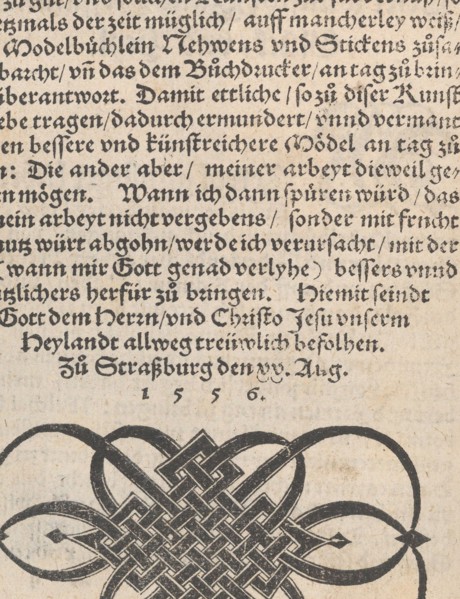 etzmals der zeit müglich / auff mancherley weiß /
Modelbüchlein Nehwens vnd Stickens zůsa⸗
bracht / vñ das dem Bůchdrucker / an tag zů brin⸗
überantwort. Damit ettliche / so zů diser Kunst
ebe tragen / dadurch ermundert / vnnd vermant
en bessere vnd künstreichere Mödel an tag zů
n: Die ander aber / meiner arbeyt dieweil ge⸗
en mögen. Wann ich dann spüren würd / das
mein arbeyt nicht vergebens / sonder mit frucht
nutz würt abgohn / werde ich verursacht / mit der
(wann mir Gott genad verlyhe) bessers vnnd
tzlichers herfür zů bringen. Hiemit seindt
Gott dem Herrn / vnd Christo Jesu vnserm
Heylandt allweg treüwlich befolhen.
Zů Straßburg den xx. Aug.
1 5 5 6.